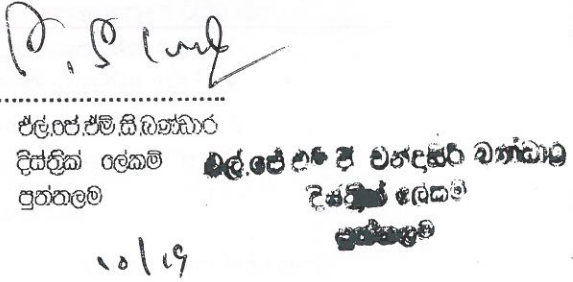 එල්.ජේ.එම්.සි.බණ්ඩාර
දිස්ත්‍රික් ලේකම්
පුත්තලම
එල්.ජේ එම් ජී චන්ද්‍රසිරි බණ්ඩාර
දිස්ත්‍රික් ලේකම්
පුත්තලම
10/19